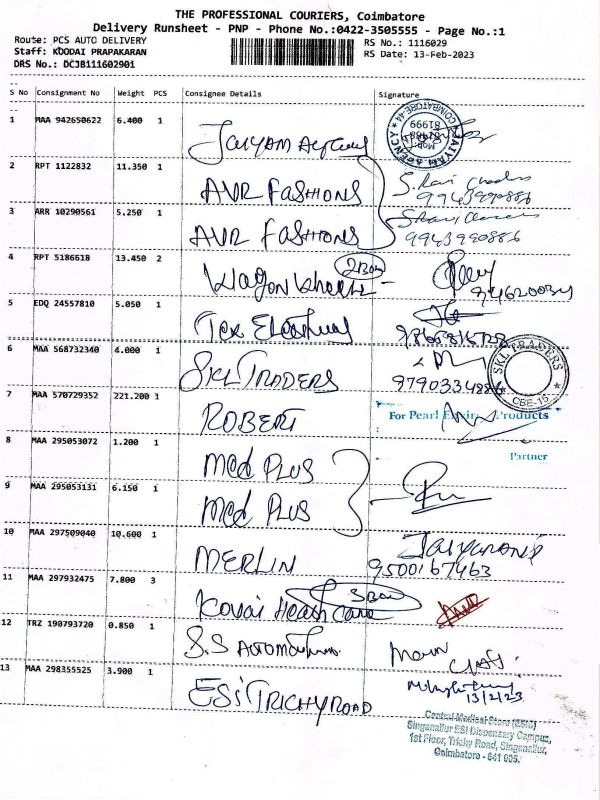 THE PROFESSIONAL COURIERS, Coimbatore
Delivery Runsheet - PNP - Phone No.:0422-3505555 - Page No.:1
Route: PCS AUTO DELIVERY
RS No.: 1116029
Staff: KOODAI PRAPAKARAN
RS Date: 13-Feb-2023
DRS No.: DCJB111602901
S No Consignment No Weight PCS Consignee Details Signature
1 MAA 942650622 6.400 1
JAIYAM Agency
JAIYAM AGENCY
COIMBATORE-44
2 RPT 1122832 11.350 1
AVR FASHIONS
9943990886
3 ARR 10290561 5.250 1
AVR FASHIONS
9943990886
4 RPT 5186618 13.450 2
2 Box
5 EDQ 24557810 5.050 1
6 MAA 568732340 4.000 1
SKL TRADERS
SKL TRADERS
CBE-15
7 MAA 570729352 221.200 1
ROBERT
For Pearl Products
Partner
8 MAA 295053072 1.200 1
Med PLUS
9 MAA 295053131 6.150 1
Med PLUS
10 MAA 297509040 10.600 1
MERLIN
9500167463
11 MAA 297932475 7.800 3
Kovai Heath Care
3 Box
12 TRZ 190793720 0.850 1
S.S
13 MAA 298355525 3.900 1
ESI TRICHY ROAD
13/2/23
Central Medical Store (ESIS)
Singanallur ESI Dispensary Campus,
1st Floor, Trichy Road, Singanallur,
Coimbatore - 641 005.